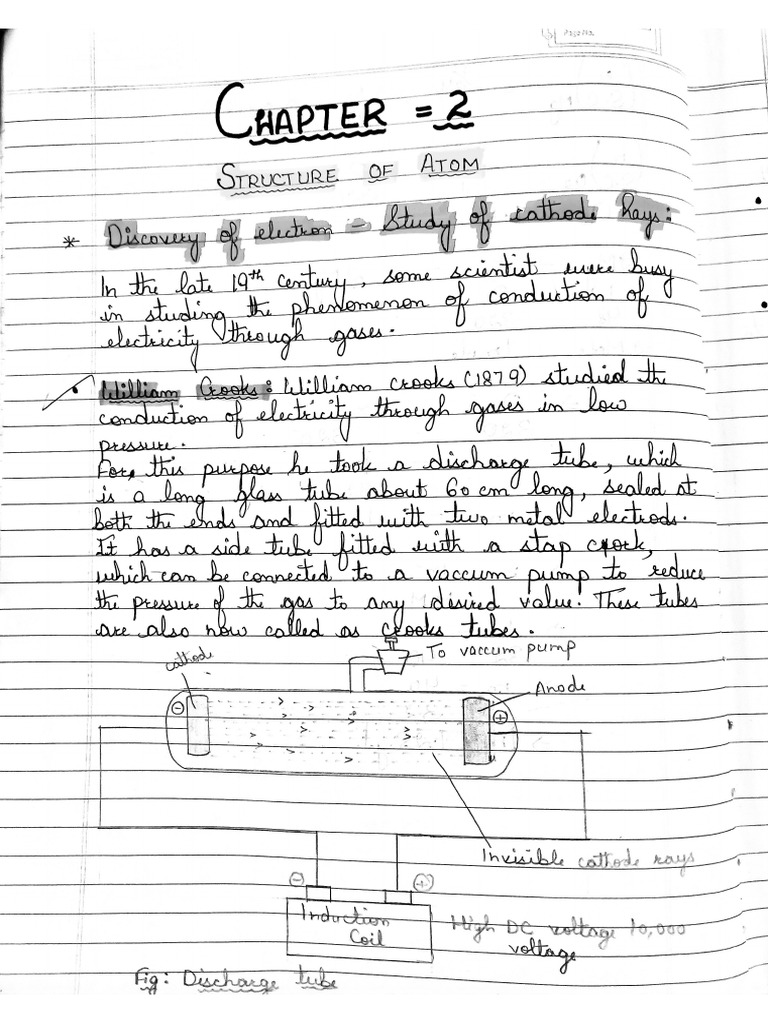 CHAPTER = 2
STRUCTURE OF ATOM
* Discovery of electron - Study of cathode Rays:
In the late 19th century, some scientist were busy
in studing the phenomenon of conduction of
electricity through gases.
• William Crooks: William crooks (1879) studied the
conduction of electricity through gases in low
pressure.
For, this purpose he took a discharge tube, which
is a long glass tube about 60 cm long, sealed at
both the ends and fitted with two metal electrods.
It has a side tube fitted with a stap crork,
which can be connected to a vaccum pump to reduce
the pressure of the gas to any desired value. These tubes
are also now called as crooks tubes.
To vaccum pump
cathode
Anode
Invisible cathode rays
Induction
Coil
High DC voltage 10,000
voltage
Fig: Discharge tube